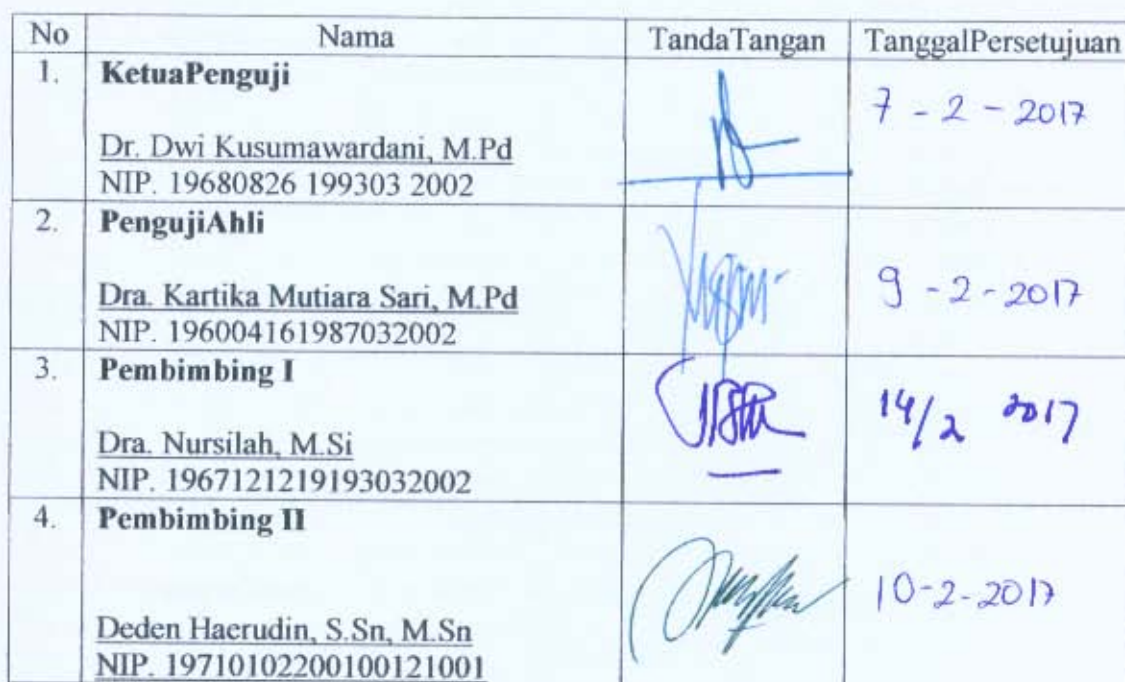 No Nama TandaTangan TanggalPersetujuan
1. KetuaPenguji
7 - 2 - 2017
Dr. Dwi Kusumawardani, M.Pd
NIP. 19680826 199303 2002
2. PengujiAhli
Dra. Kartika Mutiara Sari, M.Pd 9 - 2 - 2017
NIP. 196004161987032002
3. Pembimbing I
14/2 2017
Dra. Nursilah, M.Si
NIP. 1967121219193032002
4. Pembimbing II
10-2-2017
Deden Haerudin, S.Sn, M.Sn
NIP. 19710102200100121001